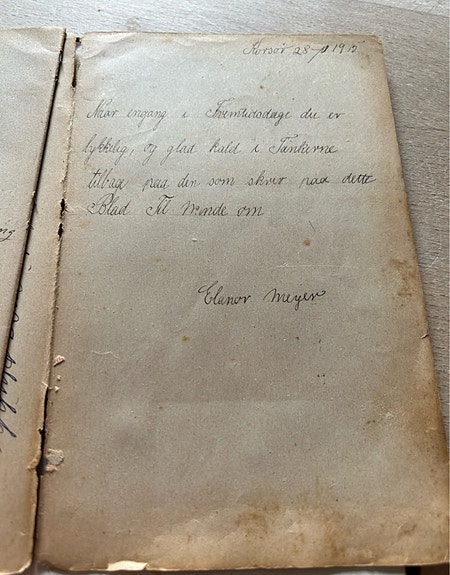 Korsør 28 1915
Naar engang i Fremtidsdage du er
lykkelig, og glad kald i Tankerne
tilbage paa den som skrev paa dette
Blad Til Minde om
Elanor Meyer